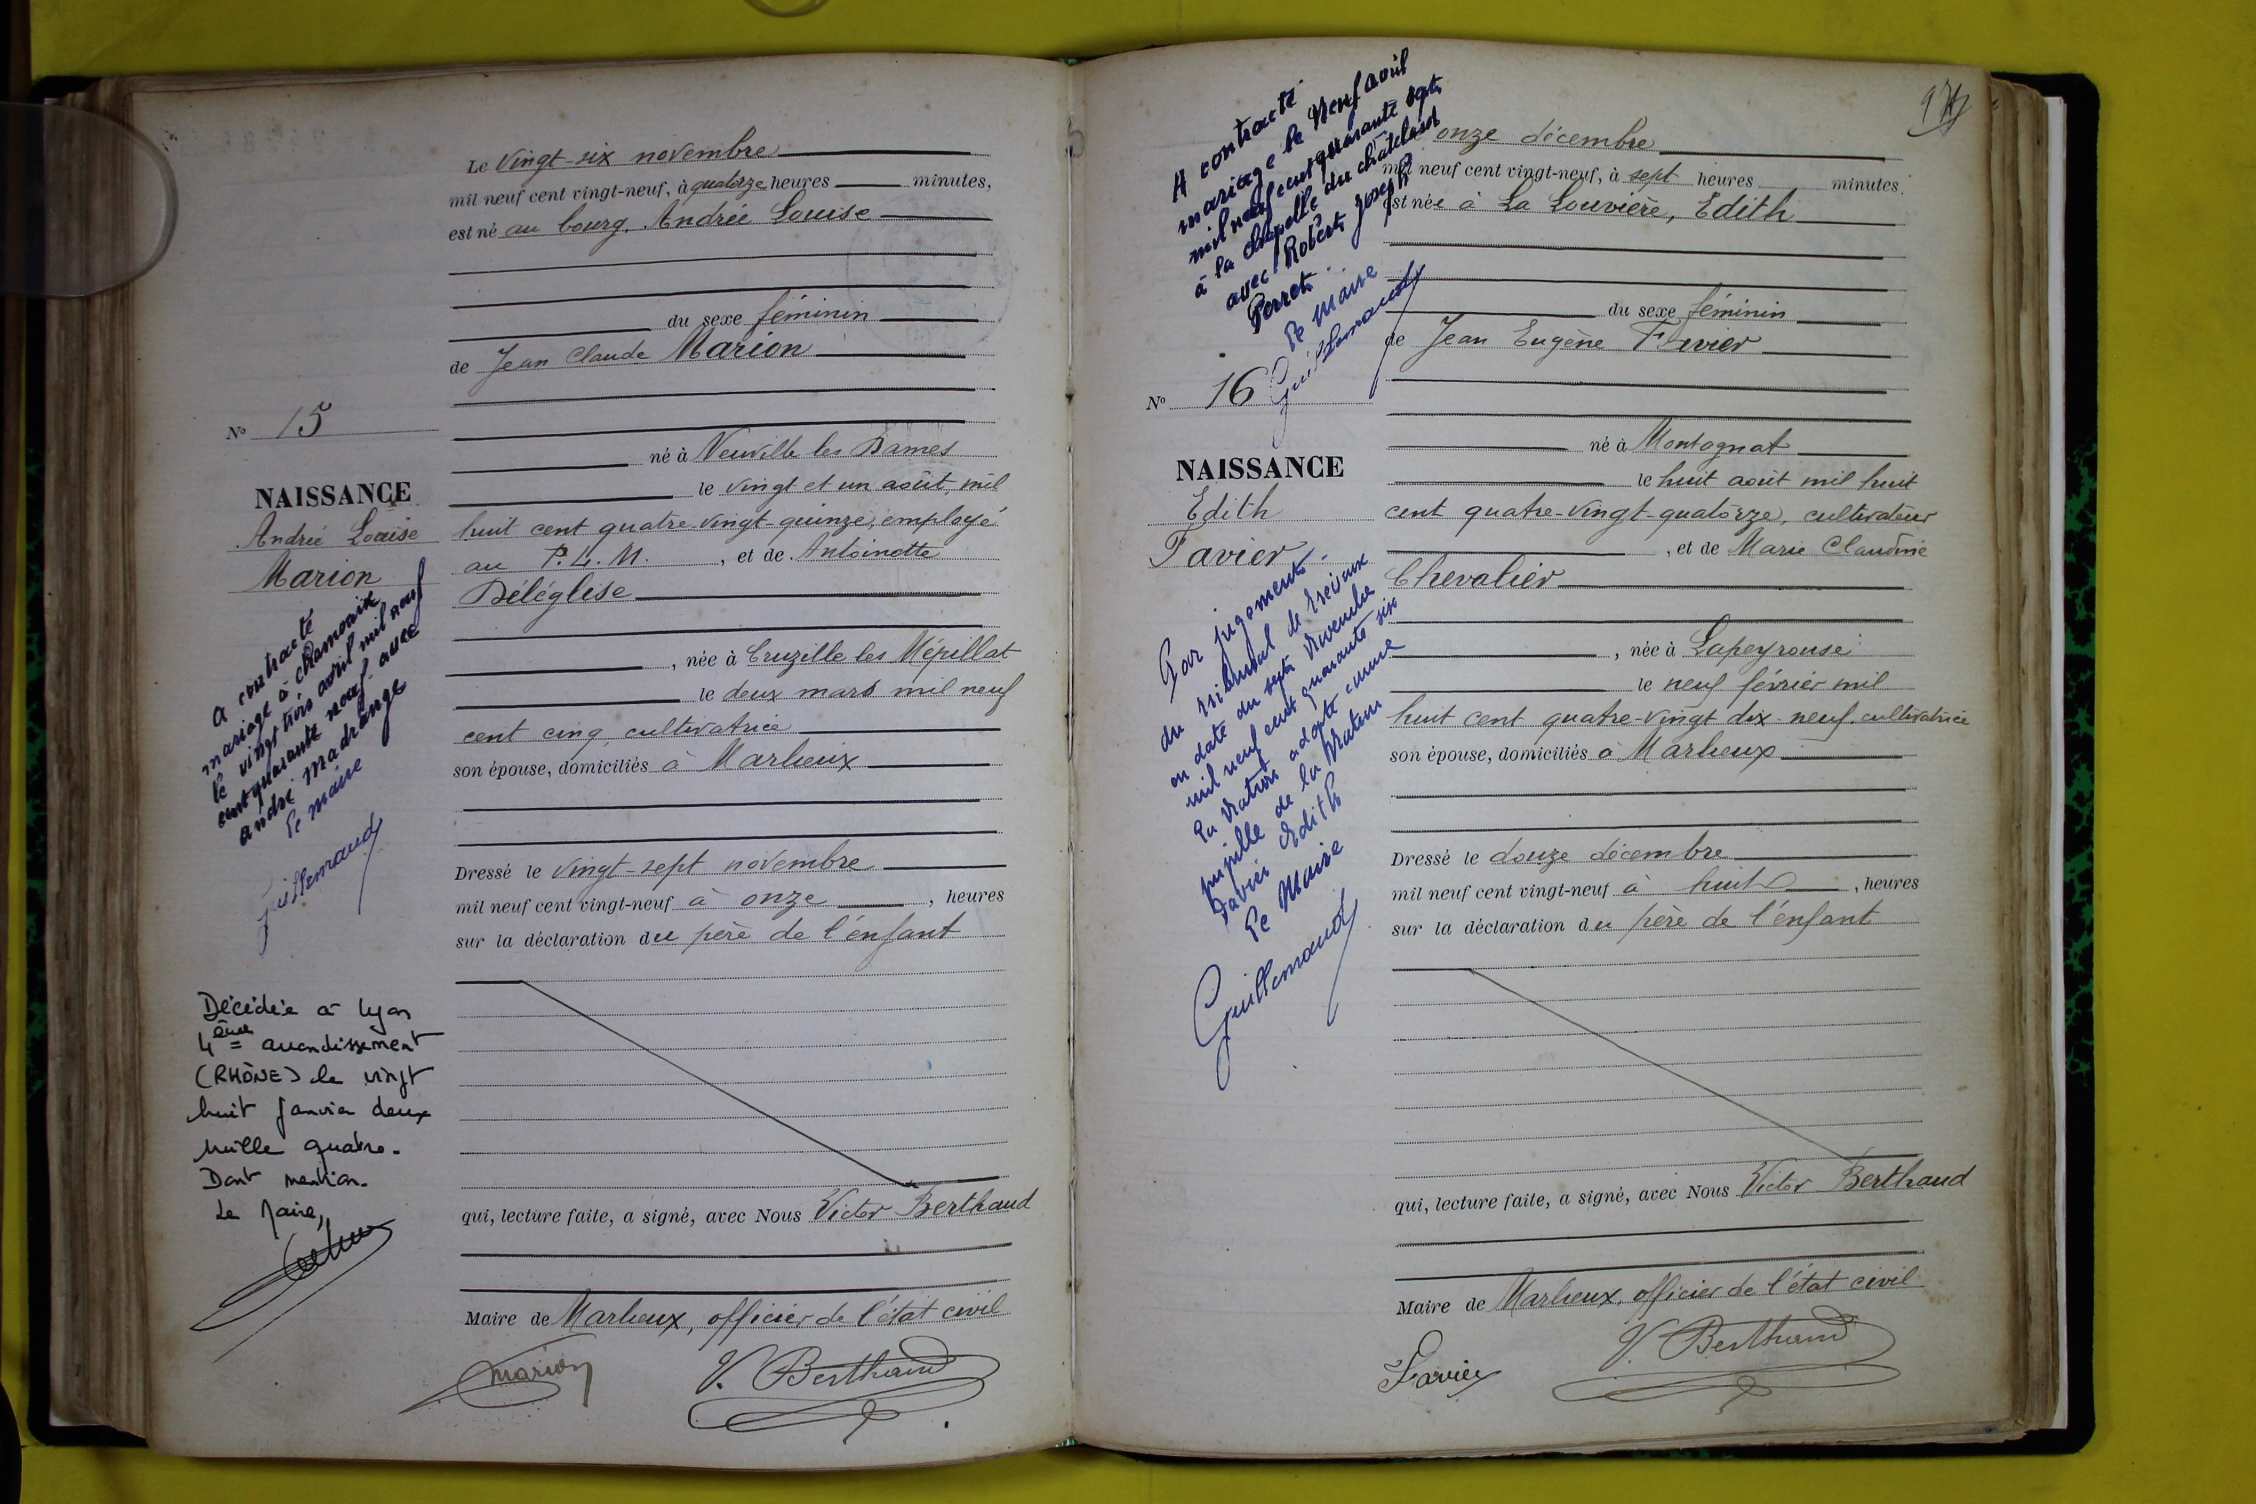 Le vingt-six novembre
mil neuf cent vingt-neuf, à quatorze heures minutes,
est né au bourg, Andrée Louise
du sexe féminin
de Jean Claude Marion
né à Neuville les Dames
le vingt et un août, mil
huit cent quatre-vingt-quinze, employé
au P. L. M. , et de Antoinette
Déléglise
, née à Cruzille les Mépillat
le deux mars mil neuf
cent cinq, cultivatrice
son épouse, domiciliés à Marlieux
Dressé le vingt-sept novembre
mil neuf cent vingt-neuf à onze , heures
sur la déclaration du père de l'enfant
qui, lecture faite, a signé, avec Nous Victor Berthaud
Maire de Marlieux, officier de l'état civil
Marion V. Berthaud
No 15
NAISSANCE
Andrée Louise
Marion
a contracté
mariage à
le vingt trois avril mil neuf
cent quarante neuf avec
andré madrange
le maire
Guillemaud
Décédée à Lyon
4ème arrondissement
(RHÔNE) le vingt
huit janvier deux
mille quatre.
Dont mention.
Le Maire,
onze décembre
mil neuf cent vingt-neuf, à sept heures minutes.
est née à La Louvière, Edith
du sexe féminin
de Jean Eugène Favier
né à Montagnat
le huit août mil huit
cent quatre-vingt-quatorze, cultivateur
, et de Marie Claudine
Chevalier
, née à Lapeyrouse
le neuf février mil
huit cent quatre-vingt dix-neuf, cultivatrice
son épouse, domiciliés à Marlieux
Dressé le douze décembre
mil neuf cent vingt-neuf à huit , heures
sur la déclaration du père de l'enfant
qui, lecture faite, a signé, avec Nous Victor Berthaud
Maire de Marlieux, officier de l'état civil
Favier V. Berthaud
A contracté
mariage le Neuf avril
mil neuf cent quarante sept
à la chapelle du châtelard
avec Robert Joseph
Perret.
le maire
Guillemaud
No 16
NAISSANCE
Edith
Favier
Par jugement
du tribunal de Trévoux
en date du sept novembre
mil neuf cent quarante six
la Nation adopte comme
pupille de la Nation
Favier Edith
le Maire
Guillemaud